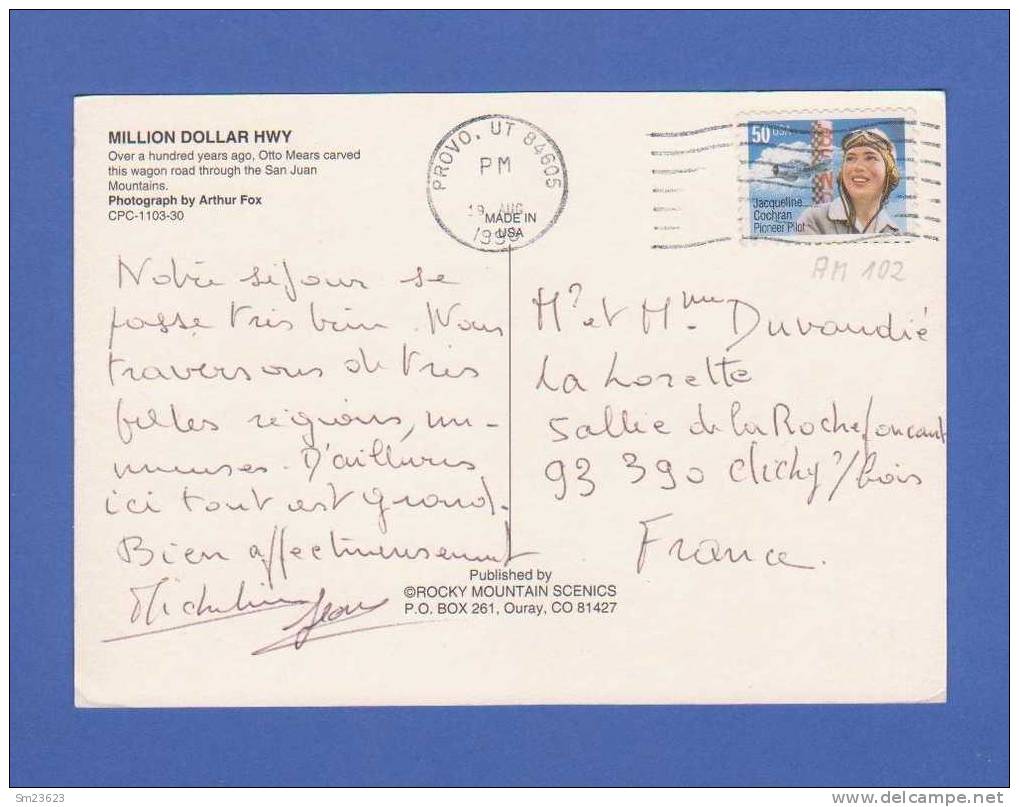 MILLION DOLLAR HWY
Over a hundred years ago, Otto Mears carved
this wagon road through the San Juan
Mountains.
Photograph by Arthur Fox
CPC-1103-30
PROVO, UT 84605
PM
19 AUG
MADE IN
USA
50 USA
Jacqueline
Cochran
Pioneer Pilot
AM 102
Notre séjour se
passe très bien. Nous
traversons de très
belles régions, im-
menses. D'ailleurs
ici tout est grand.
Bien affectueusement
Micheline Jean
Mr et Mme Duvaudié
La Lorette
5 allée de la Rochefoucault
93 390 Clichy s/bois
France
Published by
©ROCKY MOUNTAIN SCENICS
P.O. BOX 261, Ouray, CO 81427
Sm23623
www.delcampe.net